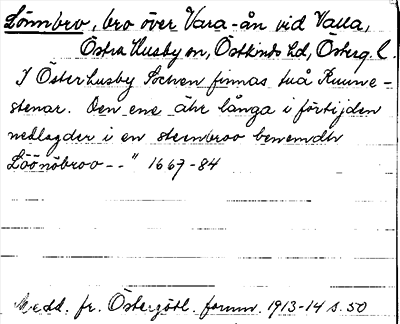 Lönnbro, bro över Vara-ån vid Valla,
Östra Husby sn, Östkinds hd, Österg. l.
"I Österhusby Sochen finnas två Runne-
stenar. Den ene ähr långa i förtijden
nedlagder i en steenbroo benemdh
Löönöbroo--" 1667-84
Medd. fr. Östergötl. fornm. 1913-14 s. 50